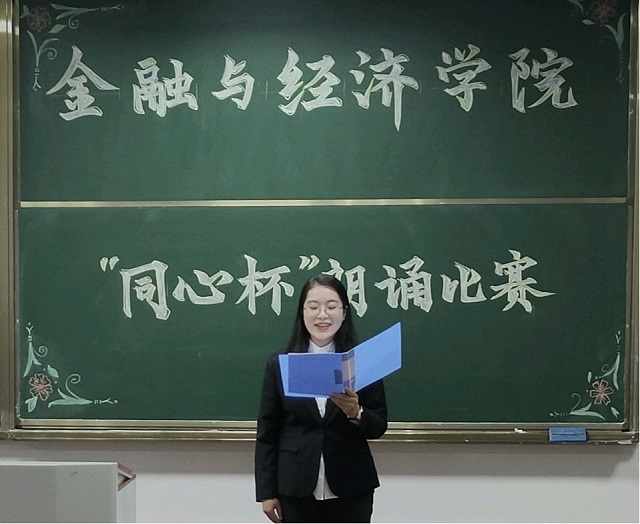 金融与经济学院
“同心杯”朗诵比赛